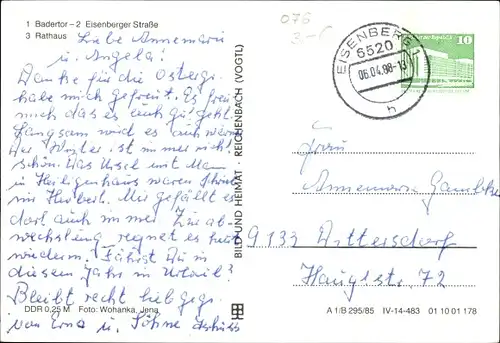 1 Badertor – 2 Eisenberger Straße
3 Rathaus
Liebe Annemarie
u. Angela!
Danke für die Ostergr.
habe mich gefreut. Es freut
mich das es euch gut geht
Langsam wird es auch warm
Der Winter ist immer nicht
schön. Das Ursel mit Mann
in Heiligenhaus waren
im Herbst. Mir gefällt es
dort auch immer. Zur ab-
wechslung regnet es heut
wiederum. Fährst Du in
diesem Jahr in Urlaub?
Bleibt recht lieb gegr.
von Erna u. Söhne Tschüss
DDR 0,25 M Foto: Wohanka, Jena
BILD UND HEIMAT · REICHENBACH (VOGTL)
076
3-
EISENBERG 1
6520
06.04.88-13
h
10
Frau
Annemarie
9132 Wittersdorf
Hauptstr. 72
A 1/B 295/85 IV-14-483 01 10 01 178